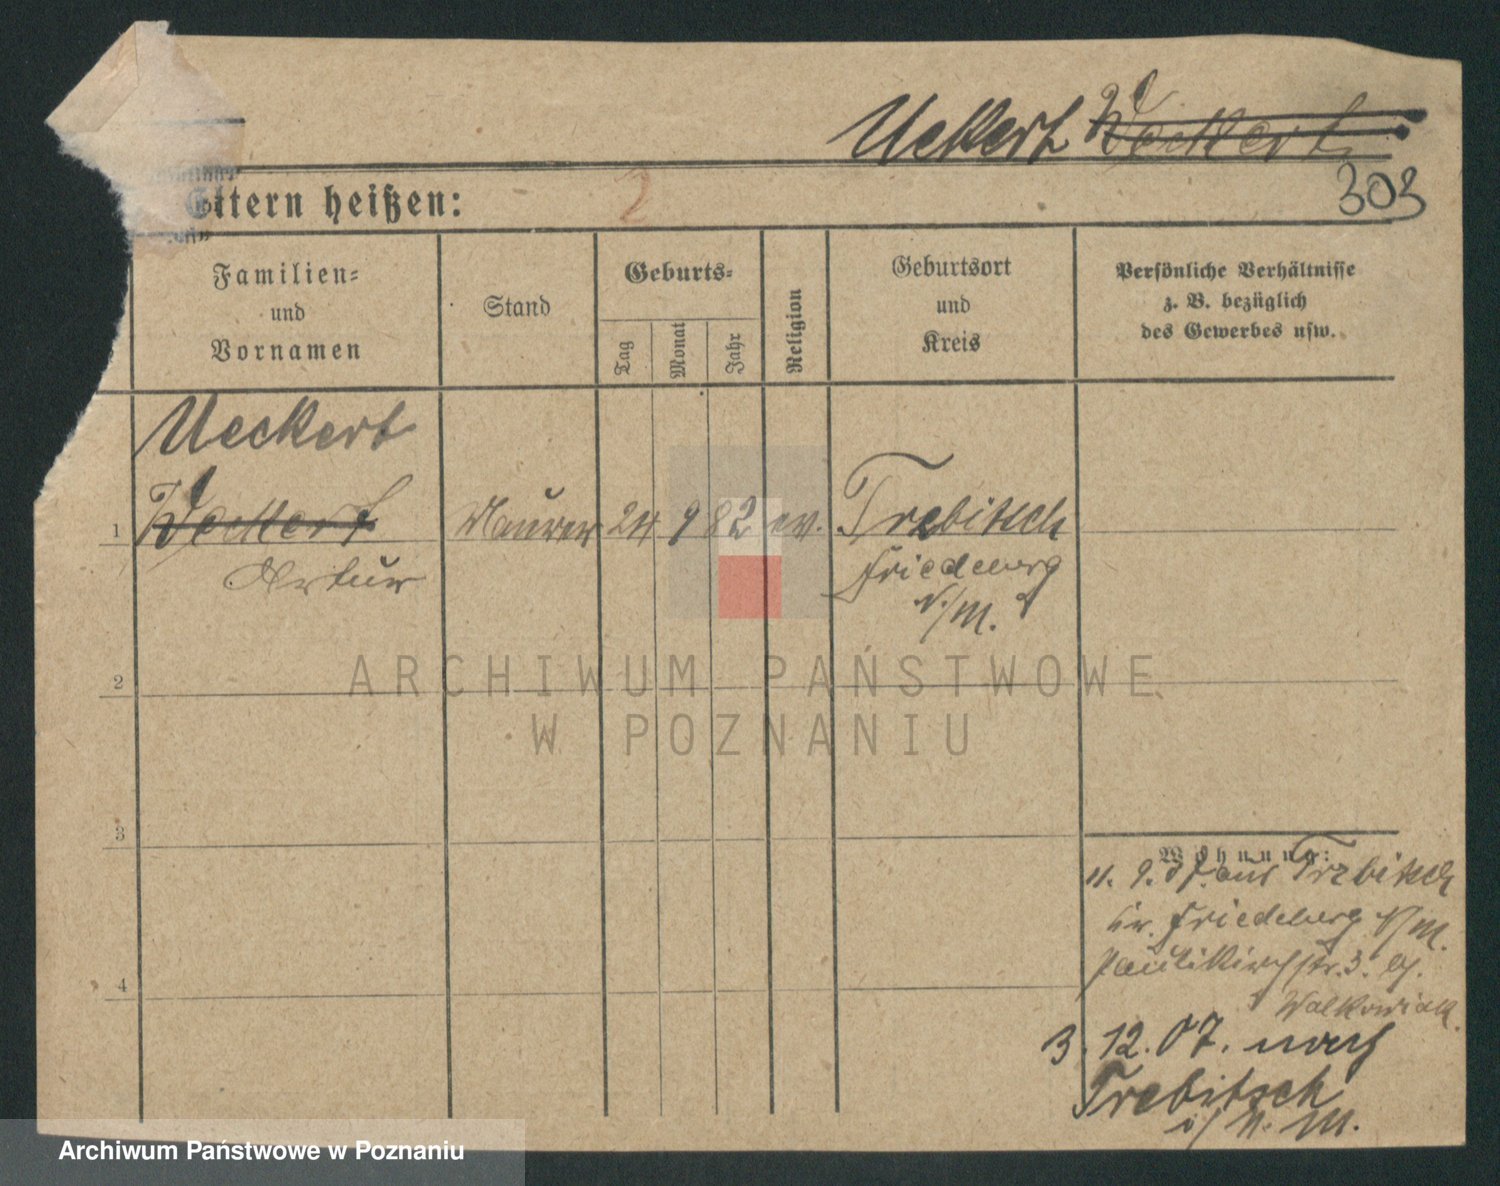 Ueckert Weckert
303
Eltern heißen:
2
Familien-
und
Vornamen
Stand
Geburts-
Tag
Monat
Jahr
Religion
Geburtsort
und
Kreis
Persönliche Verhältnisse
z. B. bezüglich
des Gewerbes usw.
Ueckert
1 Weckert Maurer 24 9 82 ev. Trebitsch
Artur Friedeberg
N/M.
2
3
4
ARCHIWUM PAŃSTWOWE
W POZNANIU
Wohnung:
11. 9. 07. aus Trebitsch
Kr. Friedeberg N/M.
Paulikirchstr. 3. bei
Walkowiak.
3. 12. 07. nach
Trebitsch
i/N. M.
Archiwum Państwowe w Poznaniu